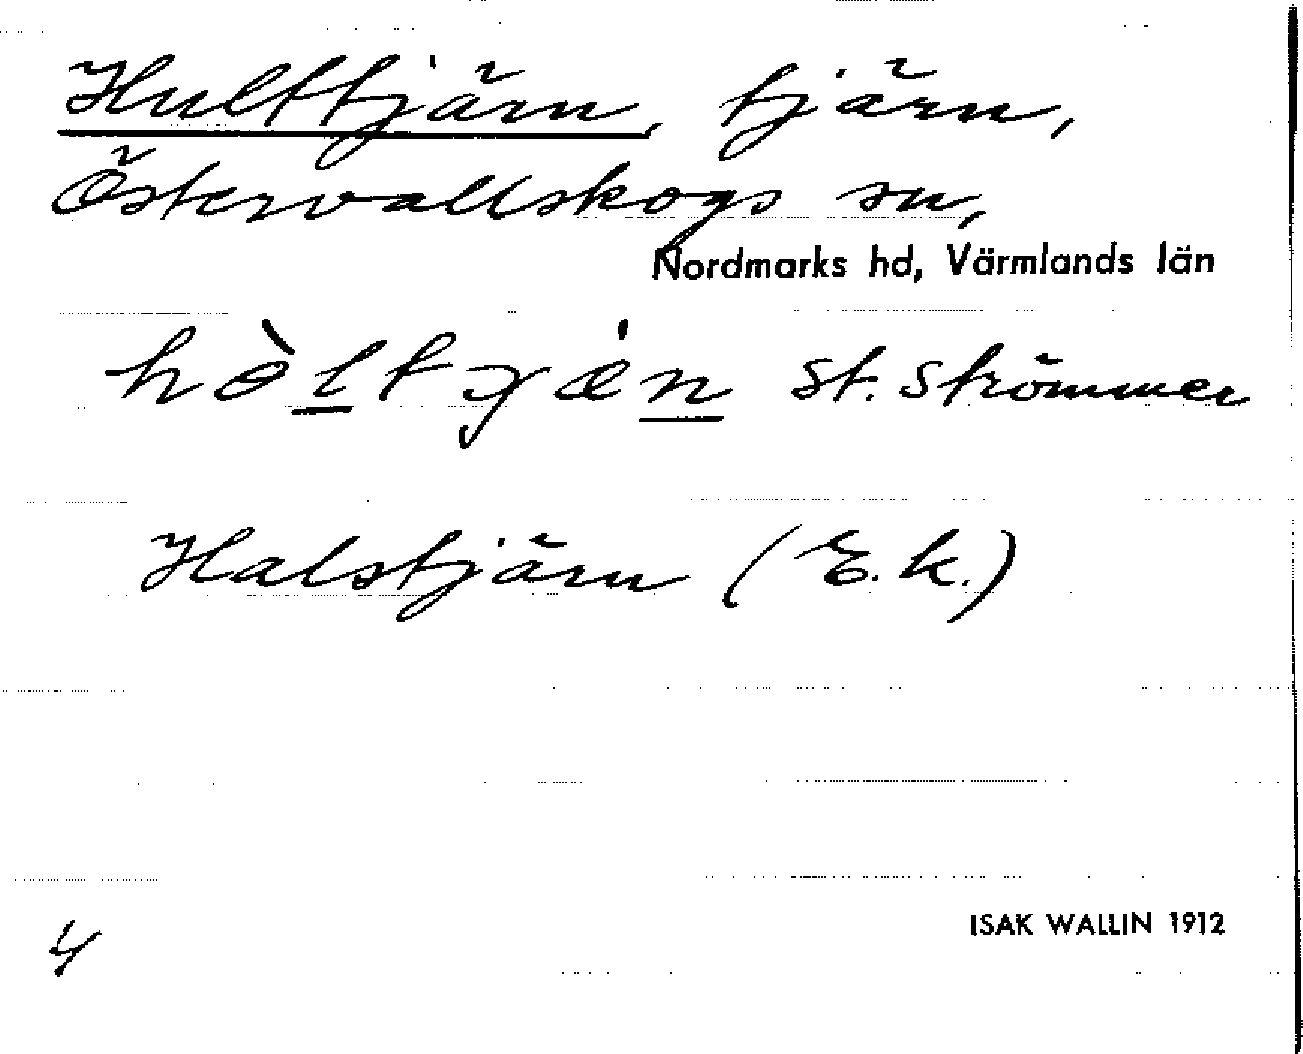 Hulttjärn, tjärn,
Östervallskogs sn,
Nordmarks hd, Värmlands län
hòltjæ̍n St. Strömmer
Halstjärn (E.k.)
4
ISAK WALLIN 1912